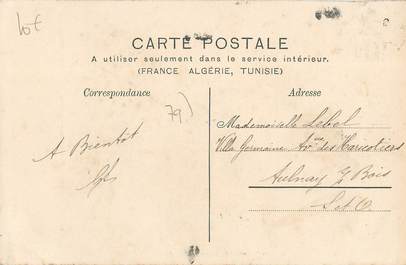 lot
CARTE POSTALE
A utiliser seulement dans le service intérieur.
(FRANCE ALGÉRIE, TUNISIE)
Correspondance
Adresse
79)
A Bientôt
Mademoiselle Lebel
Villa Germaine Av. des
Aulnay s/ Bois
S et O.